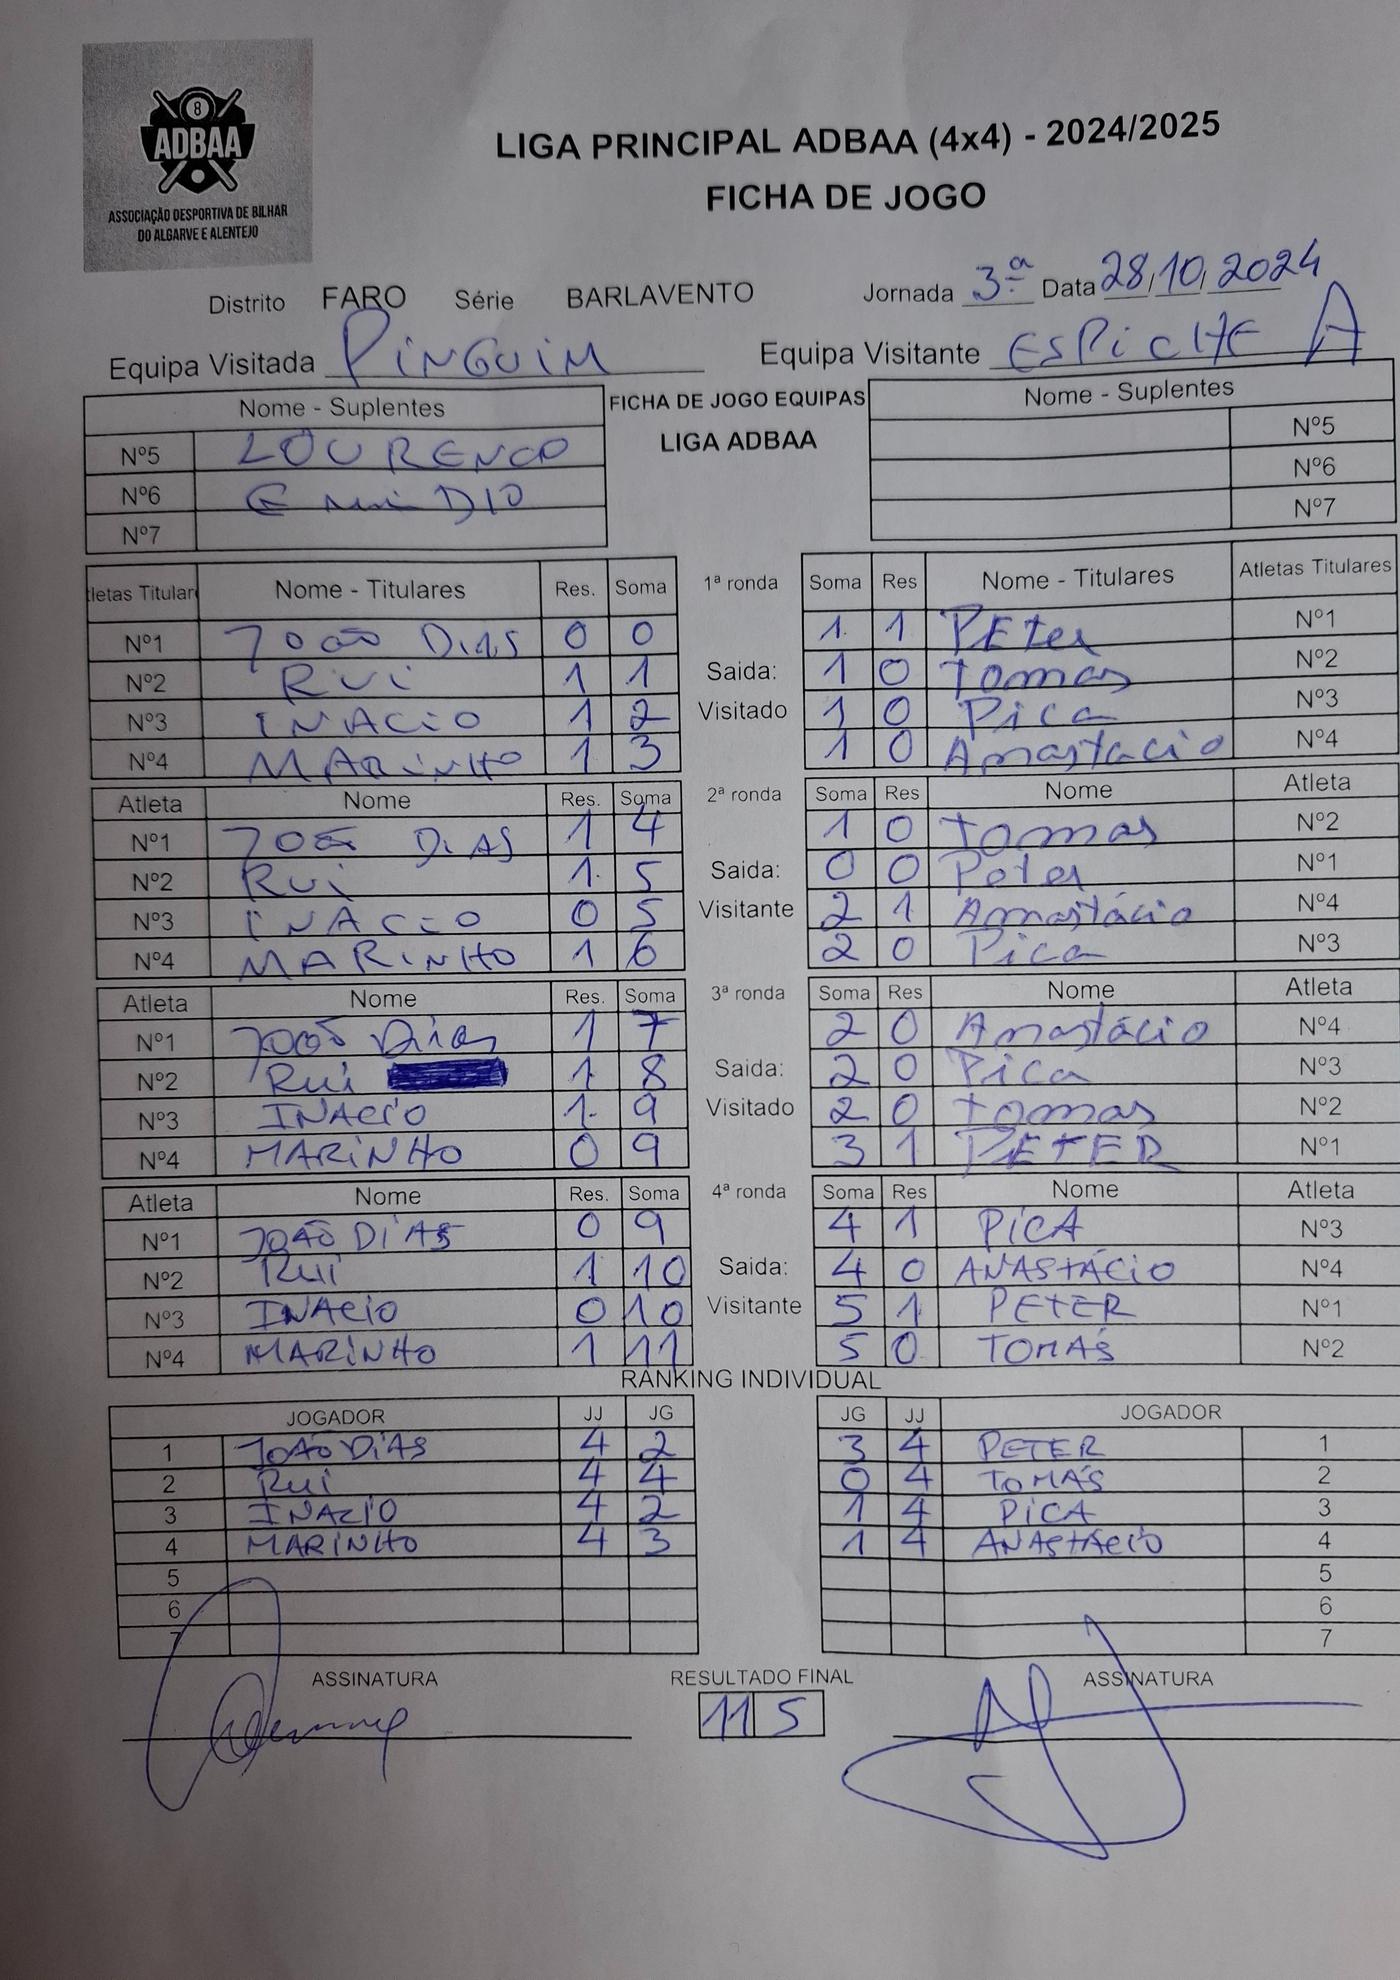 8
ADBAA
ASSOCIAÇÃO DESPORTIVA DE BILHAR
DO ALGARVE E ALENTEJO
LIGA PRINCIPAL ADBAA (4x4) - 2024/2025
FICHA DE JOGO
Distrito FARO Série BARLAVENTO Jornada 3ª Data 28/10/2024
Equipa Visitada PINGUIM Equipa Visitante ESPICHE A
Nome - Suplentes FICHA DE JOGO EQUIPAS Nome - Suplentes
LIGA ADBAA
Nº5 LOURENCO Nº5
Nº6 EmiDIO Nº6
Nº7 Nº7
tletas Titular Nome - Titulares Res. Soma 1ª ronda Soma Res Nome - Titulares Atletas Titulares
Nº1 João Dias 0 0 1 1 PEter Nº1
Nº2 Rui 1 1 Saida: 1 0 Tomas Nº2
Nº3 INACIO 1 2 Visitado 1 0 Pica Nº3
Nº4 MARINHO 1 3 1 0 Anastacio Nº4
Atleta Nome Res. Soma 2ª ronda Soma Res Nome Atleta
Nº1 João DIAS 1 4 1 0 Tomas Nº2
Nº2 Rui 1 5 Saida: 0 0 Peter Nº1
Nº3 INACIO 0 5 Visitante 2 1 Anastácio Nº4
Nº4 MARINHO 1 6 2 0 Pica Nº3
Atleta Nome Res. Soma 3ª ronda Soma Res Nome Atleta
Nº1 João Dias 1 7 2 0 Anastácio Nº4
Nº2 Rui 1 8 Saida: 2 0 Pica Nº3
Nº3 INACIO 1 9 Visitado 2 0 Tomas Nº2
Nº4 MARINHO 0 9 3 1 PETER Nº1
Atleta Nome Res. Soma 4ª ronda Soma Res Nome Atleta
Nº1 JOÃO DIAS 0 9 4 1 PICA Nº3
Nº2 Rui 1 10 Saida: 4 0 ANASTÁCIO Nº4
Nº3 INACIO 0 10 Visitante 5 1 PETER Nº1
Nº4 MARINHO 1 11 5 0 TOMÁS Nº2
RANKING INDIVIDUAL
JOGADOR JJ JG JG JJ JOGADOR
1 JOÃO DIAS 4 2 3 4 PETER 1
2 Rui 4 4 0 4 TOMÁS 2
3 INACIO 4 2 1 4 PICA 3
4 MARINHO 4 3 1 4 ANASTÁCIO 4
5 5
6 6
7 7
ASSINATURA RESULTADO FINAL ASSINATURA
11 5